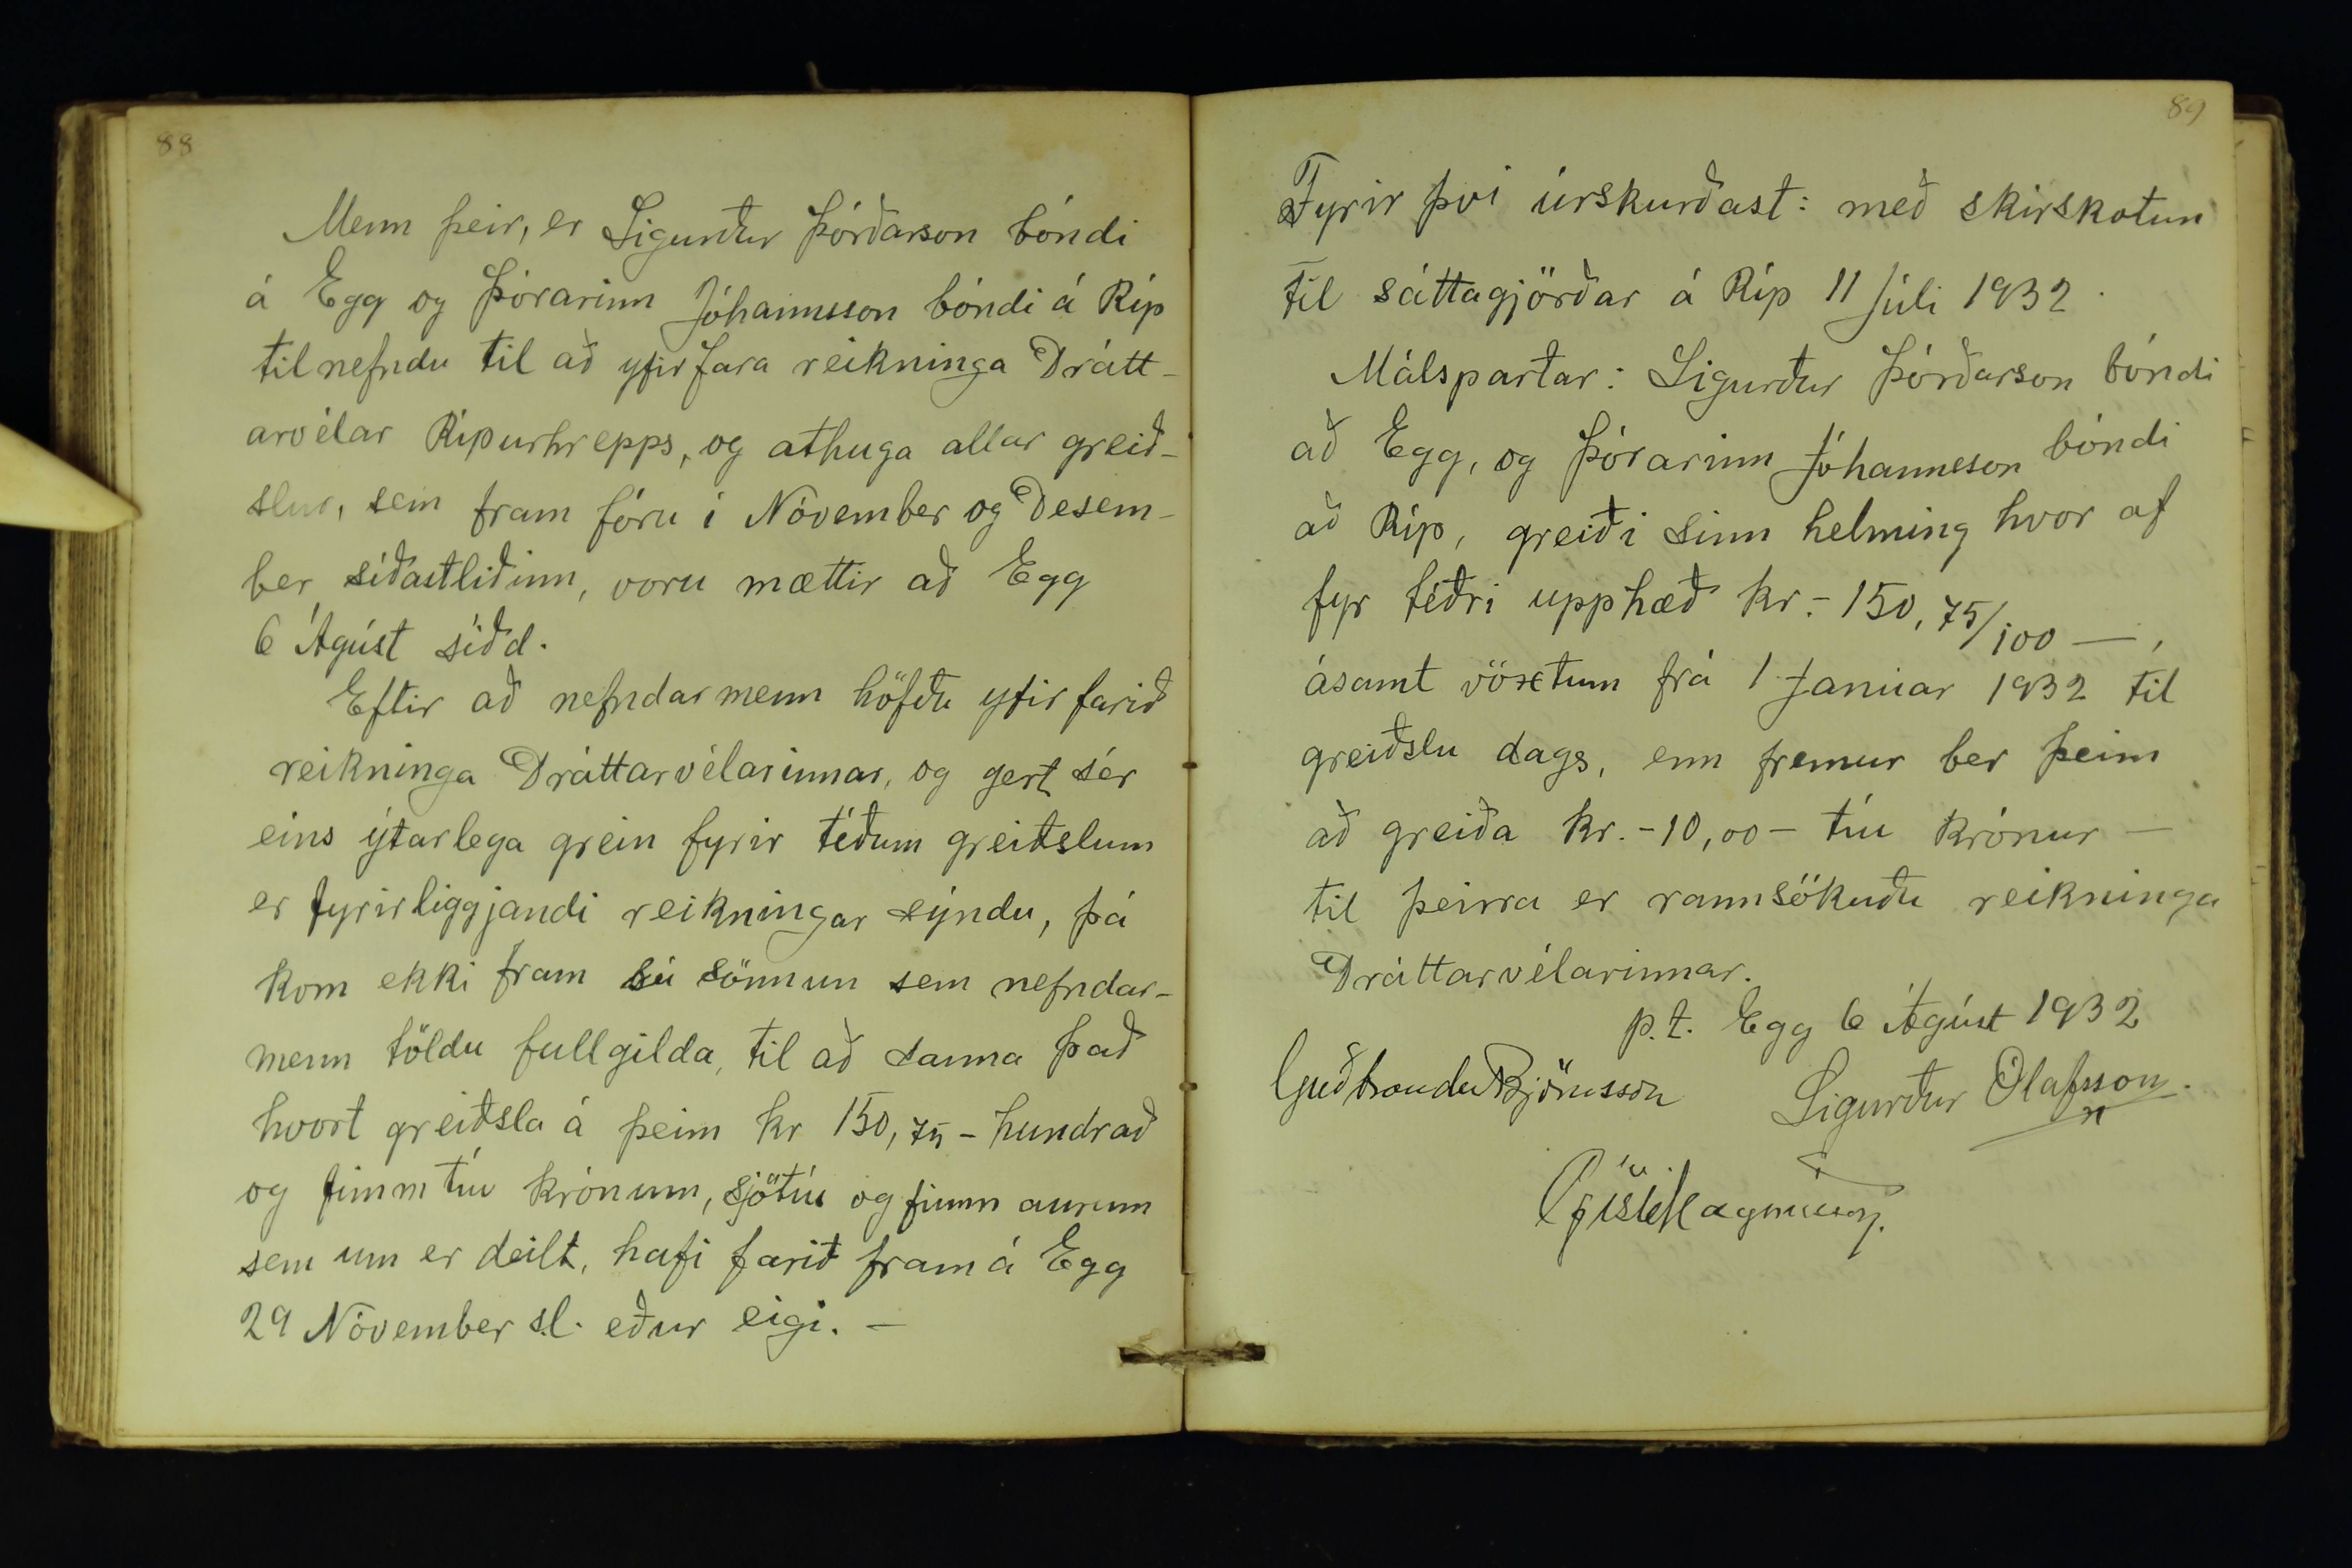 88
Menn þeir, er Sigurður Þórðarson bóndi
á Egg og Þórarinn Jóhannsson bóndi á Ríp
tilnefndu til að yfirfara reikninga Drátt-
arvélar Rípurhrepps, og athuga allar greið-
slur, sem fram fóru í Nóvember og Desem-
ber síðastliðinn, voru mættir að Egg
6 Ágúst síðd.
Eftir að nefndarmenn höfðu yfir farið
reikninga Dráttarvélarinnar, og gert sér
eins ýtarlega grein fyrir téðum greiðslum
er fyrirliggjandi reikningar sýndu, þá
kom ekki fram sú sönnun sem nefndar-
menn töldu fullgilda, til að sanna það
hvort greiðsla á þeim kr 150,75 - hundrað
og fimmtíu krónum, sjötíu og fimm aurum
sem um er deilt, hafi farið fram á Egg
29 Nóvember s.l. eður eigi. -
89
Fyrir því úrskurðast: með skírskotun
til sáttagjörðar á Ríp 11 Júli 1932.
Málspartar: Sigurður Þórðarson bóndi
að Egg, og Þórarinn Jóhannsson bóndi
að Ríp, greiði sinn helming hvor af
fyr téðri upphæð kr. - 150,75/100 —,
ásamt vöxtum frá 1 Januar 1932 til
greiðslu dags, enn fremur ber þeim
að greiða kr. - 10,00 - tíu krónur —
til þeirra er rannsökuðu reikninga
Dráttarvélarinnar.
p.t. Egg 6 Ágúst 1932
Guðbrandur Björnsson Sigurður Ólafsson.
Gísli Magnússon.